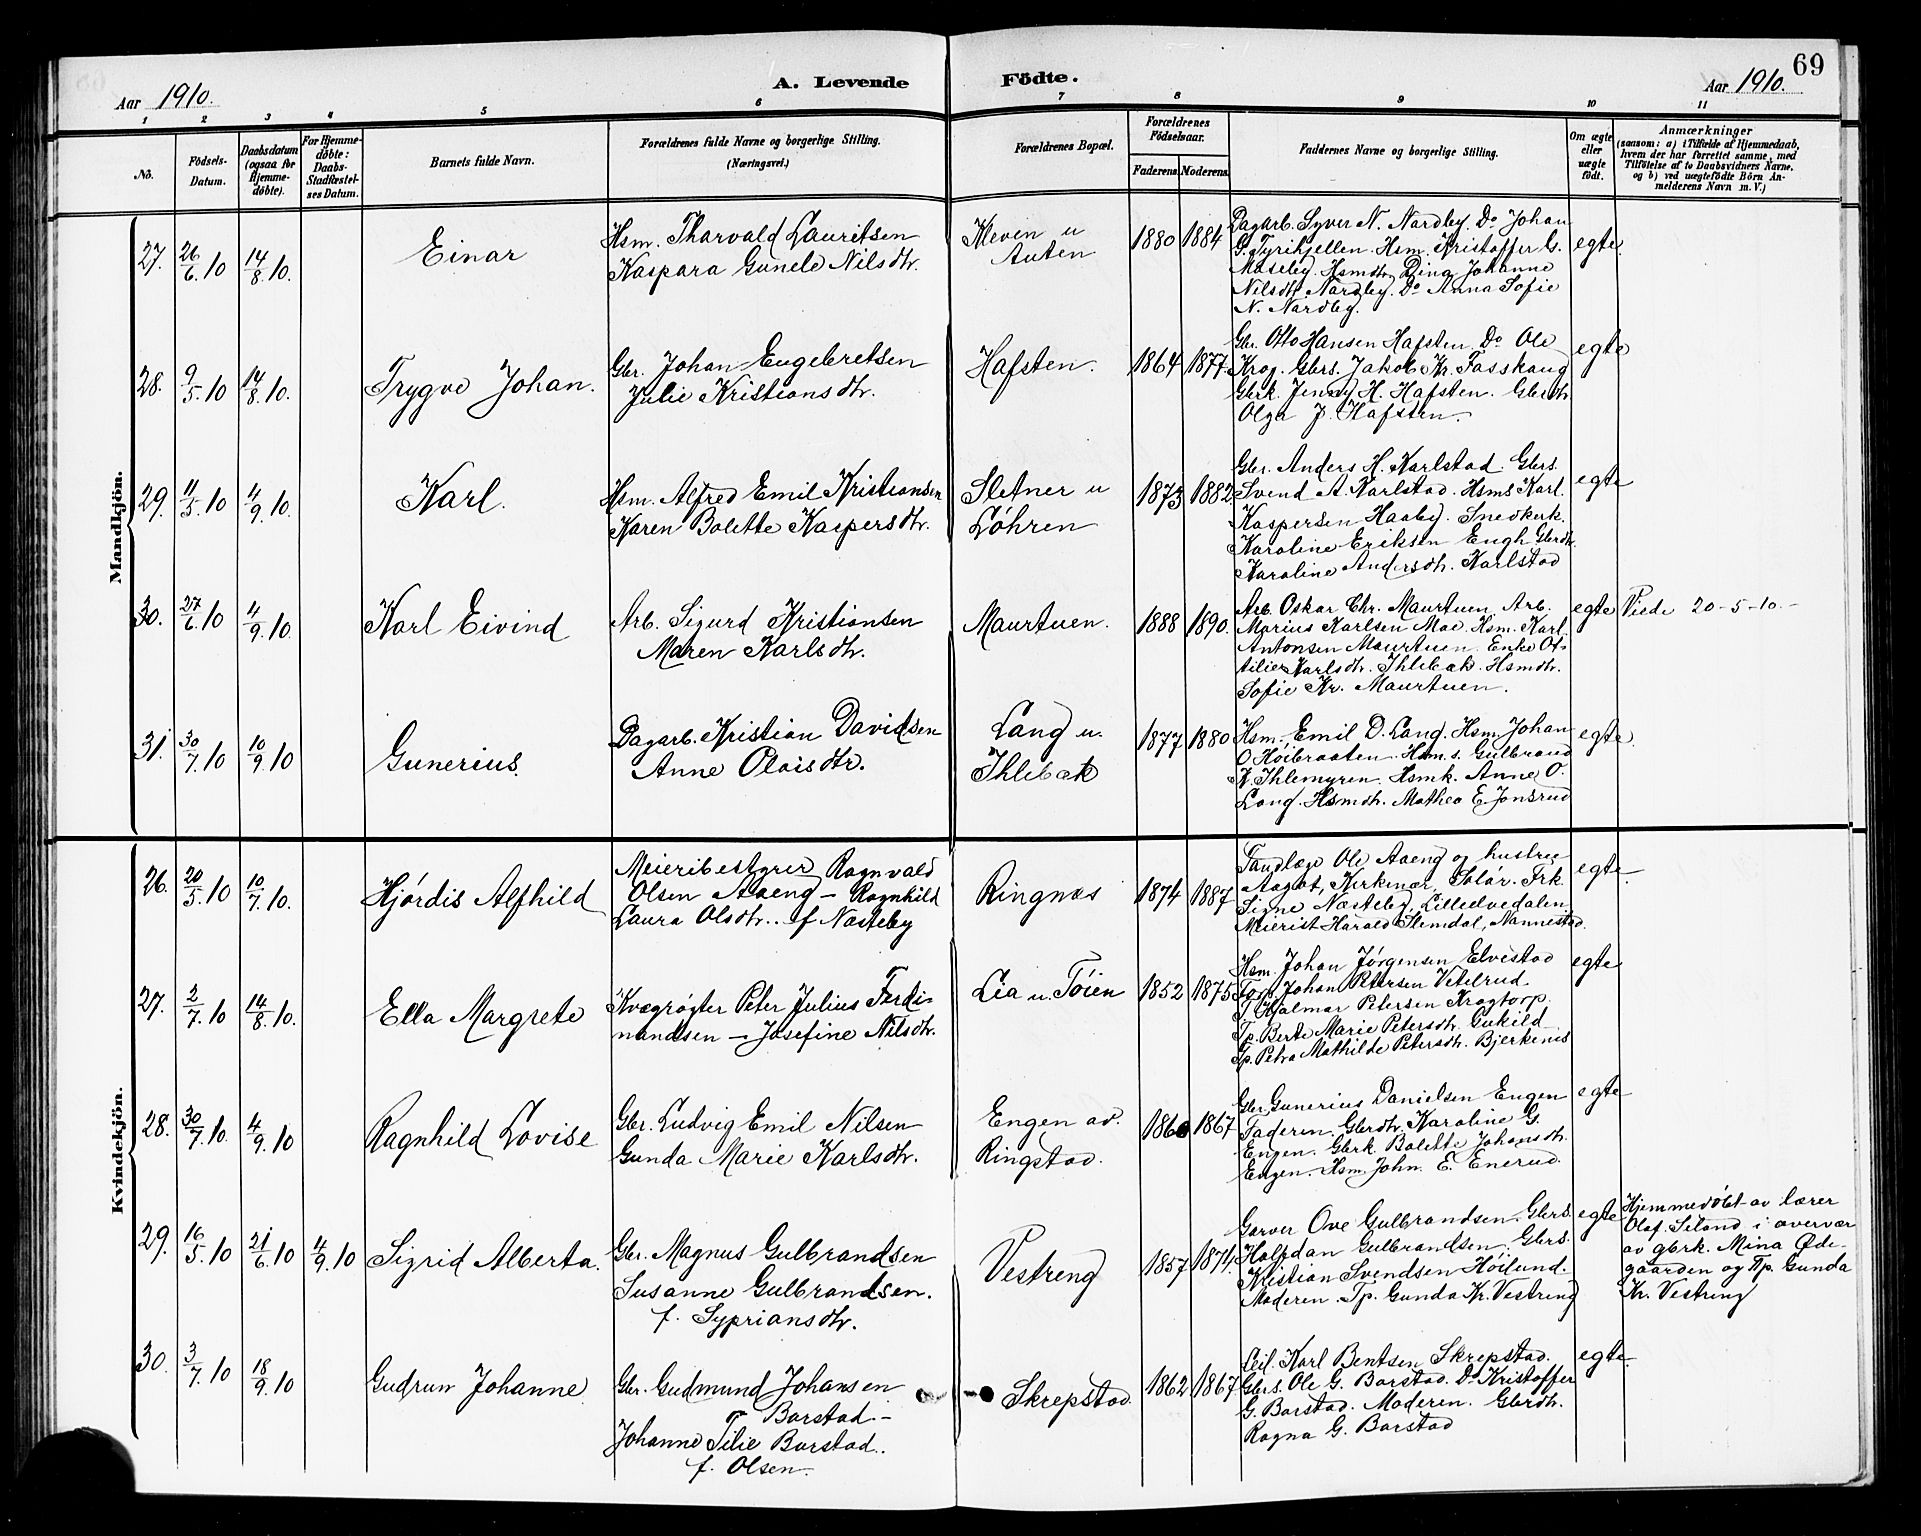 69
Aar 1910.
A. Levende Födte.
Aar 1910.
1 2 3 4 5 6 7 8 9 10 11
No.
Födsels-Datum.
Daabsdatum (ogsaa for Hjemmedöbte).
For Hjemmedöbte: Daabs-Stadfæstelses Datum.
Barnets fulde Navn.
Forældrenes fulde Navne og borgerlige Stilling.
(Næringsvei.)
Forældrenes Bopæl.
Forældrenes Födselsaar.
Faderens. Moderens.
Faddernes Navne og borgerlige Stilling.
Om ægte eller uægte födt.
Anmærkninger
(saasom: a) i Tilfælde af Hjemmedaab,
hvem der har forrettet samme, med
Tilföielse af to Daabsvidners Navne,
og b) ved uægtefödte Börn An-
melderens Navn m. V.)
Mandkjön.
27. 26/6.10 14/8.10. Einar
Hsm. Tharvald Lauritsen
Kaspara Gunele Nilsdtr.
Kleven u
Auten
1880 1884
Dagarb. Syver N. Nordby. Do Johan
G. Tyrihjellen. Hsm. Kristoffer G.
Moseby. Hsmdtr. Dina Johanne
Nilsdtr. Nordby. Do Anna Sofie
N. Nordby.
egte.
28. 9/5.10 14/8.10. Trygve Johan.
Gbr. Johan Engebretsen
Julie Kristiansdtr.
Hafsten.
1864 1877.
Gbr. Otto Hansen Hafsten. Do Ole
Krog. Gbrs. Jakob Kr. Fasskaug
Gbrk. Jenny H. Hafsten. Gbrdtr.
Olga J. Hafsten.
egte
29. 11/5.10 4/9.10. Karl.
Hsm. Alfred Emil Kristiansen
Karen Bolette Kaspersdtr.
Sletner u
Løhren
1873 1882.
Gbr. Anders H. Karlstad. Gbrs.
Svend A. Karlstad. Hsms Karl.
Kaspersen Haaby. Snedkerk.
Karoline Eriksen Engh Gbrdtr.
Karoline Andersdtr. Karlstad
egte
30. 27/6.10 4/9.10. Karl Eivind
Arb. Sigurd Kristiansen
Maren Karlsdtr.
Maurtuen.
1888 1890.
Arb. Oskar Chr. Maurtuen. Arb.
Marius Karlsen Moe. Hsm. Karl.
Antonsen Maurtuen. Enke Ot-
tilie Karlsdtr. Ihlebæk. Hsmdtr.
Sofie Kr. Maurtuen.
egte
Viede 20-5-10.-
31. 30/7.10 10/9.10 Gunerius.
Dagarb. Kristian Davidsen
Anne Olaisdtr.
Lang u.
Ihlebæk
1877 1880
Hsm. Emil D. Lang. Hsm. Johan
O Høibraaten. Hsm.s. Gulbrand
K. Ihlemyren. Hsmk. Anne O.
Lang. Hsmdtr. Mathea E. Jonsrud
egte.
Kvindekjön.
26. 20/5.10 10/7.10. Hjørdis Alfhild
Meieribestyrer Ragnvald
Olsen Aaeng - Ragnhild
Laura Olsdtr. f Næsteby
Ringnæs
1874 1887
Tandlæge Ole Aaeng og hustru
Aagot, Kirkenær, Solør. Frk.
Signe Næsteby, Lilleelvedalen
Meierist Harald Slemdal, Nannestad.
egte.
27. 2/7.10 14/8.10. Ella Margrete
Kvægrøgter Peter Julius Ferdi-
nandsen - Josefine Nilsdtr.
Lia u. Tøien
1852 1875
Hsm. Johan Jørgensen Elvestad
Johan Petersen Vetelrud
Hjalmar Petersen Krogtorp.
Tp. Berte Marie Petersdtr. Gukild
Tp. Petra Mathilde Petersdtr. Bjerkenes
egte
28. 30/7.10. 4/9.10 Ragnhild Lovise
Gbr. Ludvig Emil Nilsen
Gunda Marie Karlsdtr.
Engen av.
Ringstad.
1867
Gbr. Gunerius Danielsen Engen
Faderen. Gbrdtr. Karoline G.
Engen. Gbrk. Bolette Johansdtr.
Engen. Hsm. John. E. Enerud.
egte
29. 16/5.10 21/6.10 4/9.10 Sigrid Alberta.
Gbr. Magnus Gulbrandsen
Susanne Gulbrandsen.
f. Sypriansdtr.
Vestreng
1857 1874.
Garver Ove Gulbrandsen. Gbrs.
Halvdan Gulbrandsen. Gbrs.
Kristian Svendsen Høilund.
Moderen. Tp. Gunda Kr. Vestreng
egte
Hjemmedøbt av lærer
Olaf Seland i overvær
av gbrk. Mina Øde-
gaarden og Tp. Gunda
Kr. Vestreng
30. 3/7.10 18/9.10 Gudrun Johanne
Gbr. Gudmund Johansen
Borstad.-
Johanne Tilie Borstad.
f. Olsen.
Skrepstad.
1862 1867
Karl Bentsen Skrepstad.
Gbrs. Ole G. Borstad. Do Kristoffer
G. Borstad. Moderen. Gbrdtr.
Ragna G. Borstad
egte.